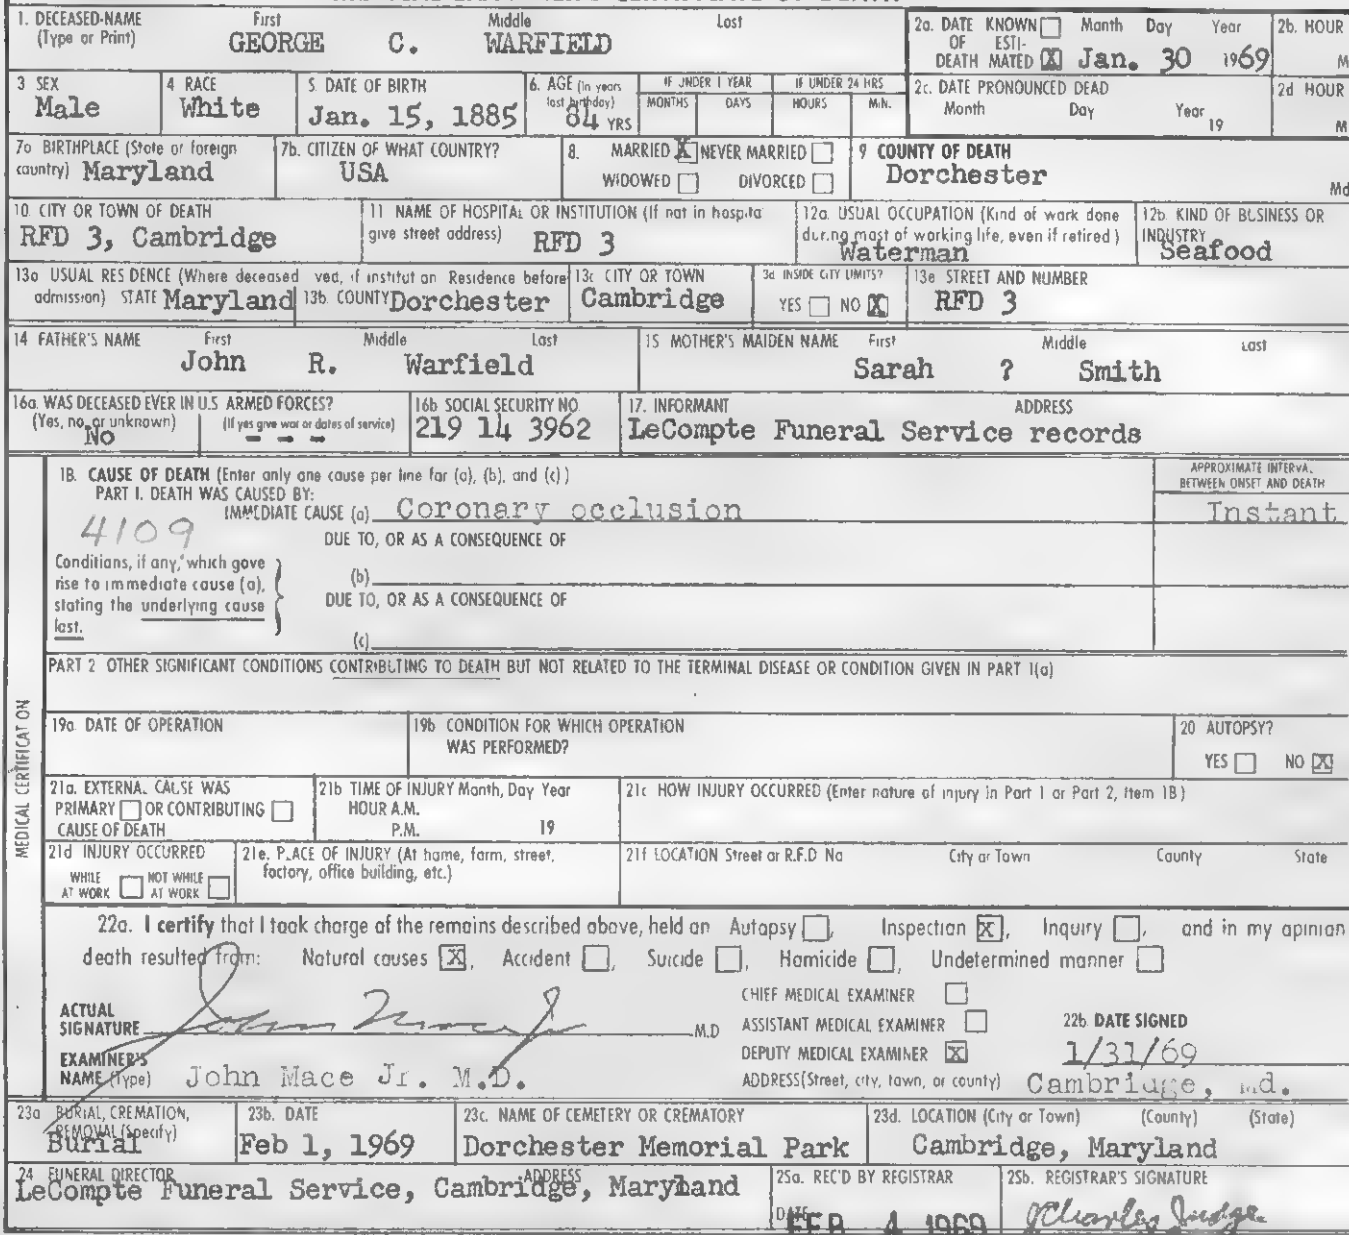 1. DECEASED-NAME (Type or Print) First Middle Last
GEORGE C. WARFIELD
2a. DATE OF DEATH KNOWN ☐ ESTIMATED ☒ Month Day Year
Jan. 30 1969
2b. HOUR
M
3 SEX
Male
4 RACE
White
5. DATE OF BIRTH
Jan. 15, 1885
6. AGE (In years last birthday)
84 YRS
IF UNDER 1 YEAR
MONTHS DAYS
IF UNDER 24 HRS
HOURS MIN.
2c. DATE PRONOUNCED DEAD
Month Day Year 19
2d HOUR
M
7a BIRTHPLACE (State or foreign country) Maryland
7b. CITIZEN OF WHAT COUNTRY?
USA
8. MARRIED ☒ NEVER MARRIED ☐
WIDOWED ☐ DIVORCED ☐
9 COUNTY OF DEATH
Dorchester
Md
10. CITY OR TOWN OF DEATH
RFD 3, Cambridge
11 NAME OF HOSPITAL OR INSTITUTION (If not in hospital give street address) RFD 3
12a. USUAL OCCUPATION (Kind of work done during most of working life, even if retired)
Waterman
12b. KIND OF BUSINESS OR INDUSTRY
Seafood
13a USUAL RESIDENCE (Where deceased lived, if institution Residence before admission) STATE Maryland
13b. COUNTY Dorchester
13c CITY OR TOWN
Cambridge
3d INSIDE CITY LIMITS?
YES ☐ NO ☒
13e STREET AND NUMBER
RFD 3
14 FATHER'S NAME First Middle Last
John R. Warfield
15 MOTHER'S MAIDEN NAME First Middle Last
Sarah ? Smith
16a. WAS DECEASED EVER IN U.S ARMED FORCES?
(Yes, no, or unknown) (If yes give war or dates of service)
No - - -
16b SOCIAL SECURITY NO.
219 14 3962
17. INFORMANT ADDRESS
LeCompte Funeral Service records
MEDICAL CERTIFICATION
18. CAUSE OF DEATH (Enter only one cause per line for (a), (b), and (c))
PART I. DEATH WAS CAUSED BY:
IMMEDIATE CAUSE (a) Coronary occlusion
APPROXIMATE INTERVAL BETWEEN ONSET AND DEATH
Instant
4109
DUE TO, OR AS A CONSEQUENCE OF
Conditions, if any, which gave rise to immediate cause (a), stating the underlying cause last.
(b)
DUE TO, OR AS A CONSEQUENCE OF
(c)
PART 2 OTHER SIGNIFICANT CONDITIONS CONTRIBUTING TO DEATH BUT NOT RELATED TO THE TERMINAL DISEASE OR CONDITION GIVEN IN PART 1(a)
19a. DATE OF OPERATION
19b CONDITION FOR WHICH OPERATION WAS PERFORMED?
20 AUTOPSY?
YES ☐ NO ☒
21a. EXTERNAL CAUSE WAS
PRIMARY ☐ OR CONTRIBUTING ☐
CAUSE OF DEATH
21b TIME OF INJURY Month, Day Year
HOUR A.M.
P.M. 19
21c HOW INJURY OCCURRED (Enter nature of injury in Part 1 or Part 2, Item 18)
21d INJURY OCCURRED
WHILE AT WORK ☐ NOT WHILE AT WORK ☐
21e. PLACE OF INJURY (At home, farm, street, factory, office building, etc.)
21f LOCATION Street or R.F.D No City or Town County State
22a. I certify that I took charge of the remains described above, held an Autopsy ☐, Inspection ☒, Inquiry ☐, and in my opinion
death resulted from: Natural causes ☒, Accident ☐, Suicide ☐, Homicide ☐, Undetermined manner ☐
ACTUAL SIGNATURE John Mace Jr M.D
CHIEF MEDICAL EXAMINER ☐
ASSISTANT MEDICAL EXAMINER ☐
DEPUTY MEDICAL EXAMINER ☒
22b. DATE SIGNED
1/31/69
EXAMINER'S NAME (Type) John Mace Jr. M.D.
ADDRESS (Street, city, town, or county) Cambridge, Md.
23a BURIAL, CREMATION, REMOVAL (Specify)
Burial
23b. DATE
Feb 1, 1969
23c. NAME OF CEMETERY OR CREMATORY
Dorchester Memorial Park
23d. LOCATION (City or Town) (County) (State)
Cambridge, Maryland
24 FUNERAL DIRECTOR ADDRESS
LeCompte Funeral Service, Cambridge, Maryland
25a. REC'D BY REGISTRAR
DATE FEB 4 1969
25b. REGISTRAR'S SIGNATURE
J Charles Judge